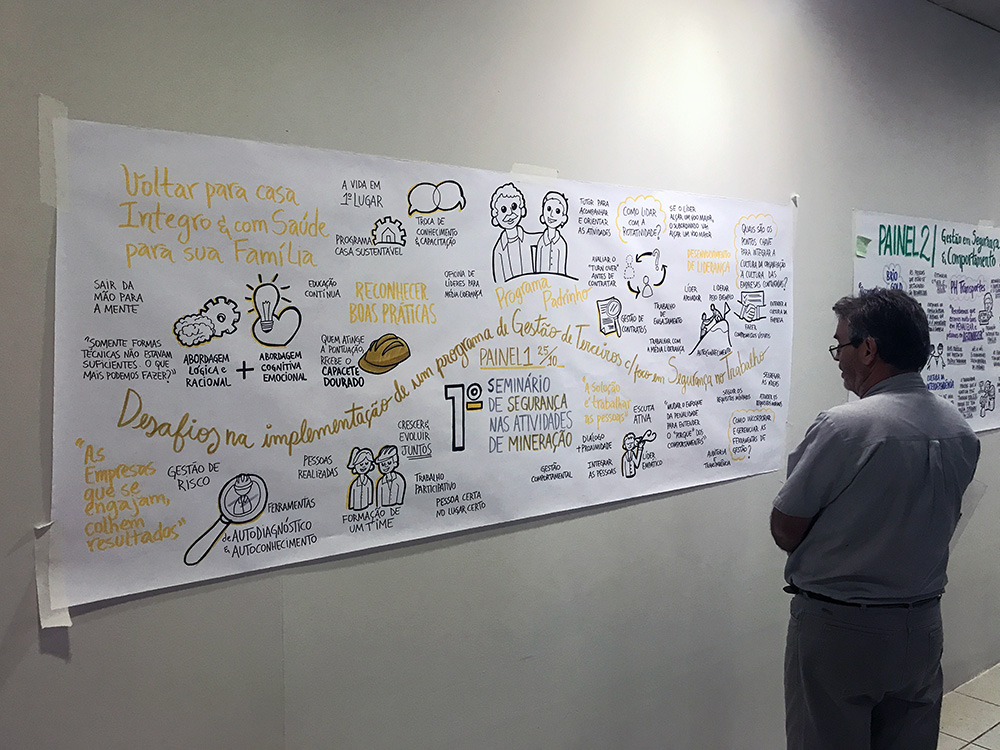 Voltar para casa
Integro & com Saúde
para sua Família
A VIDA EM
1º LUGAR
PROGRAMA
CASA SUSTENTÁVEL
TROCA DE
CONHECIMENTO
& CAPACITAÇÃO
SAIR DA
MÃO PARA
A MENTE
"SOMENTE FORMAS
TÉCNICAS NÃO ESTAVAM
SUFICIENTES. O QUE
MAIS PODEMOS FAZER?"
ABORDAGEM
LÓGICA e
RACIONAL
+
ABORDAGEM
COGNITIVA
EMOCIONAL
EDUCAÇÃO
CONTÍNUA
RECONHECER
BOAS PRÁTICAS
QUEM ATINGE
A PONTUAÇÃO,
RECEBE O
CAPACETE
DOURADO
OFICINA DE
LÍDERES PARA
MÉDIA LIDERANÇA
Programa
Padrinho
TUTOR PARA
ACOMPANHAR
E ORIENTAR
AS ATIVIDADES
COMO LIDAR
COM A
ROTATIVIDADE?
SE O LÍDER
ALÇAR UM VOO MAIOR,
O SUBORDINADO VAI
ALÇAR UM VOO MAIOR
AVALIAR O
"TURN OVER"
ANTES DE
CONTRATAR
DESENVOLVIMENTO
DE LIDERANÇA
QUAIS SÃO OS
PONTOS CHAVE
PARA INTEGRAR A
CULTURA DA ORGANIZAÇÃO
À CULTURA DAS
EMPRESAS CONTRATADAS?
GESTÃO DE
CONTRATOS
TRABALHO
DE
ENGAJAMENTO
LÍDER
LIDERAR
PELO EXEMPLO
TRABALHAR COM
A MÉDIA LIDERANÇA
AUTOCONHECIMENTO
FAZER
COMPROMISSOS VISÍVEIS
ENTENDER A
CULTURA DA
EMPRESA
Desafios na implementação de um programa de Gestão de Terceiros c/ foco em Segurança no Trabalho
PAINEL 1 25/10
1º
SEMINÁRIO
DE SEGURANÇA
NAS ATIVIDADES
DE MINERAÇÃO
"A solução
é trabalhar
as pessoas"
ESCUTA
ATIVA
DIÁLOGO
+ PROXIMIDADE
INTEGRAR
AS PESSOAS
LÍDER
EMPÁTICO
GESTÃO
COMPORTAMENTAL
"MUDAR O ENFOQUE
DA PENALIDADE
PARA ENTENDER
O "PORQUÊ" DOS
COMPORTAMENTOS"
AUDITORIA
& TRANSPARÊNCIA
COMO INCORPORAR
E GERENCIAR AS
FERRAMENTAS DE
GESTÃO?
"As
Empresas
que se
engajam,
colhem
resultados"
GESTÃO DE
RISCO
FERRAMENTAS
de AUTODIAGNÓSTICO
& AUTOCONHECIMENTO
PESSOAS
REALIZADAS
CRESCER &
EVOLUIR
JUNTOS
FORMAÇÃO DE
UM TIME
TRABALHO
PARTICIPATIVO
PESSOA CERTA
NO LUGAR CERTO
PAINEL 2
Gestão em Segurança
& Comportamento
PH Transportes